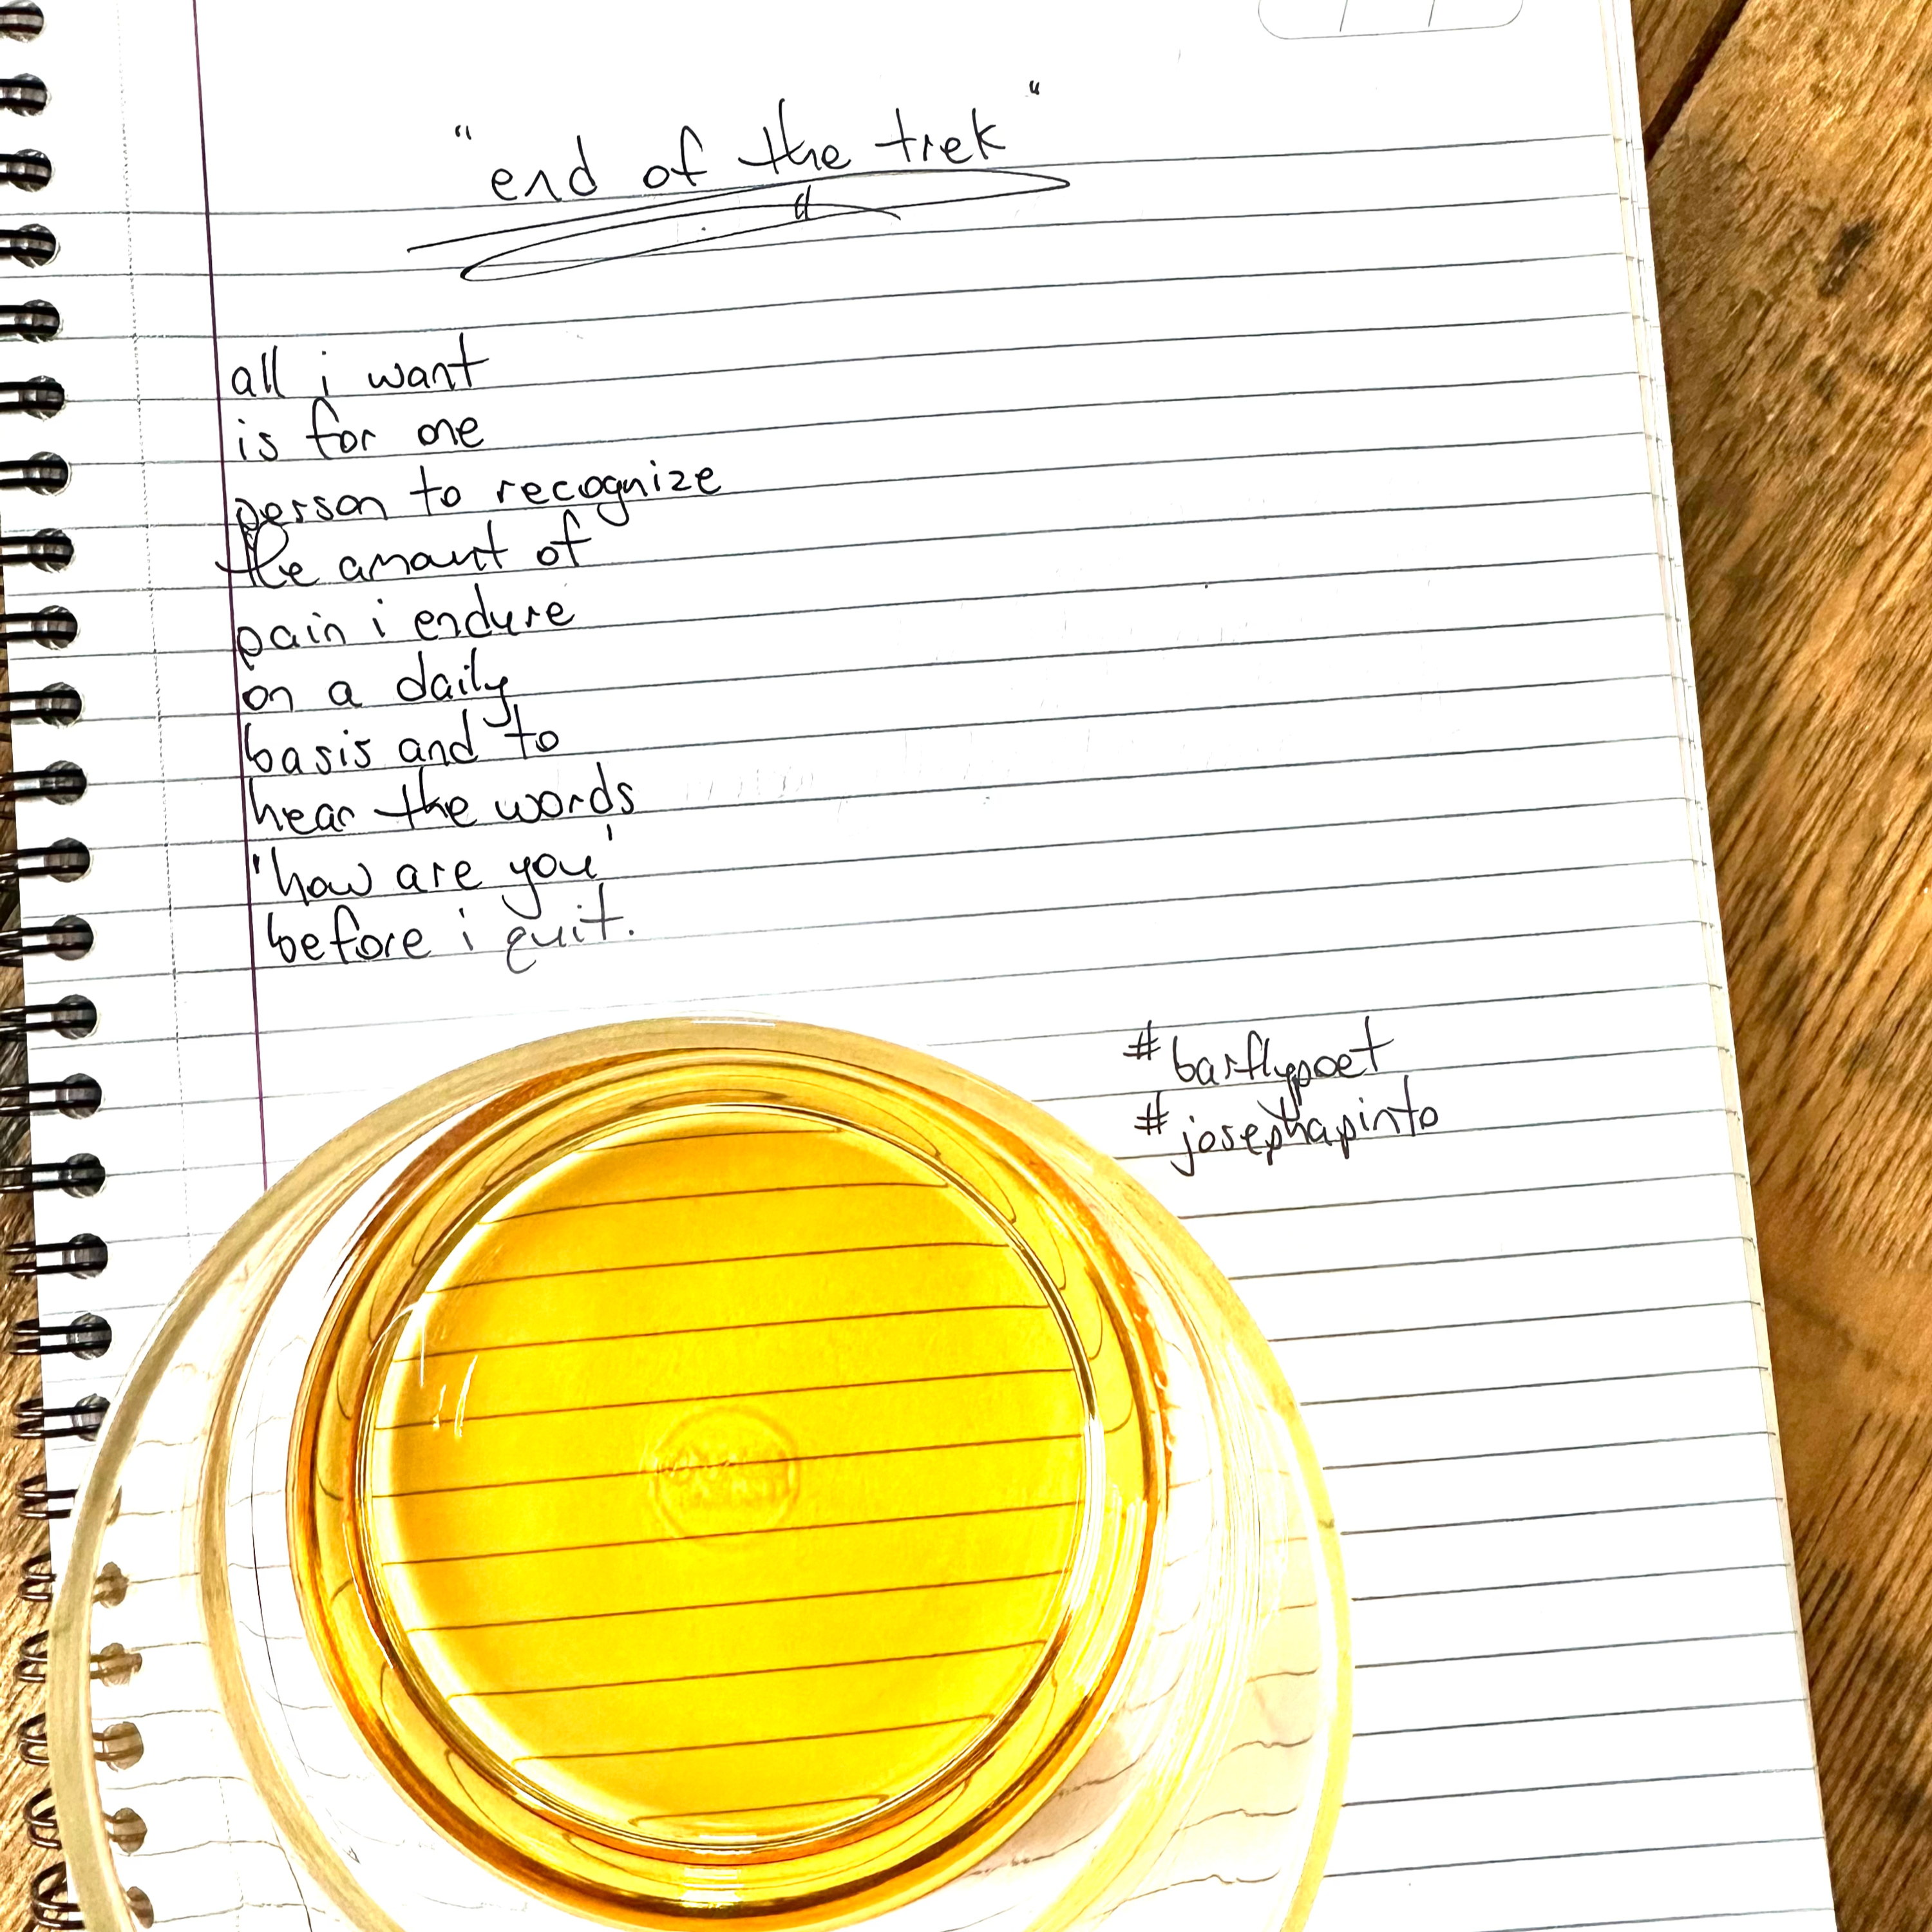 "end of the trek"
all i want
is for one
person to recognize
the amount of
pain i endure
on a daily
basis and to
hear the words
'how are you'
before i quit.
#barflypoet
#josephapinto